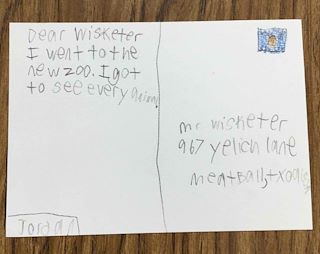 Dear Wisketer
I went to the
new zoo. I got
to see every
mr wisketer
967 yelich lane
meatball,
Jordan